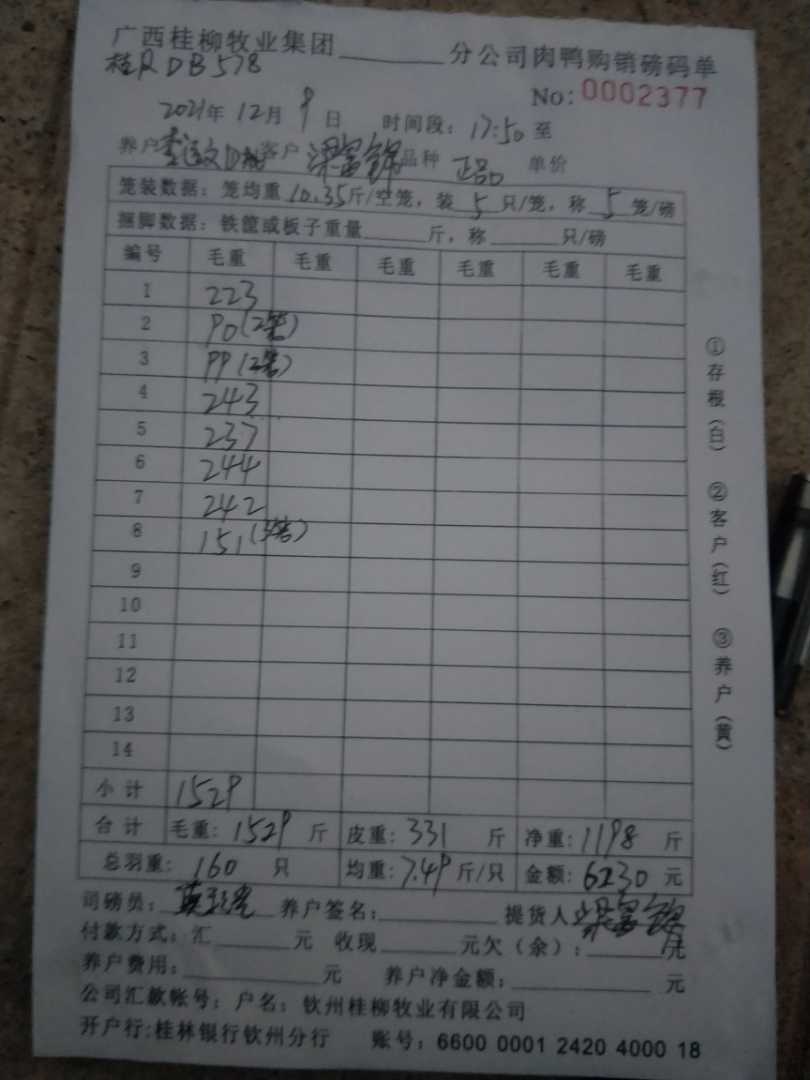 广西桂柳牧业集团______分公司肉鸭购销磅码单
桂R DB578
No: 0002377
2021年 12月 9日 时间段: 17:50 至
养户 客户 梁富锦 品种 正品 单价
笼装数据: 笼均重 10.35斤/空笼, 装 5 只/笼, 称 5 笼/磅
捆脚数据: 铁筐或板子重量______斤, 称______只/磅
编号 毛重 毛重 毛重 毛重 毛重 毛重
1 223
2 90(2笼)
3 99(2笼)
4 243
5 237
6 244
7 242
8 151(3笼)
9
10
11
12
13
14
小计 1529
合计 毛重: 1529 斤 皮重: 331 斤 净重: 1198 斤
总羽重: 160 只 均重: 7.49 斤/只 金额: 6230 元
司磅员: 养户签名:______ 提货人 梁富锦
付款方式: 汇______元 收现______元欠(余):______元
养户费用:______元 养户净金额:______元
公司汇款帐号: 户名: 钦州桂柳牧业有限公司
开户行:桂林银行钦州分行 账号: 6600 0001 2420 4000 18
①存根(白) ②客户(红) ③养户(黄)